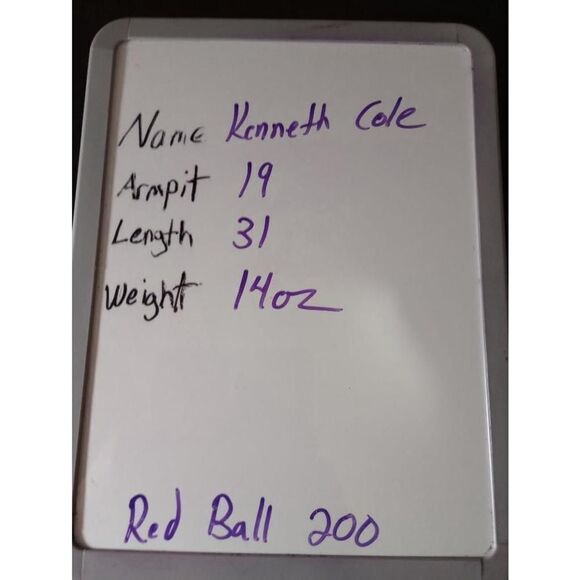 Name Kenneth Cole
Armpit 19
Length 31
Weight 14oz
Red Ball 200